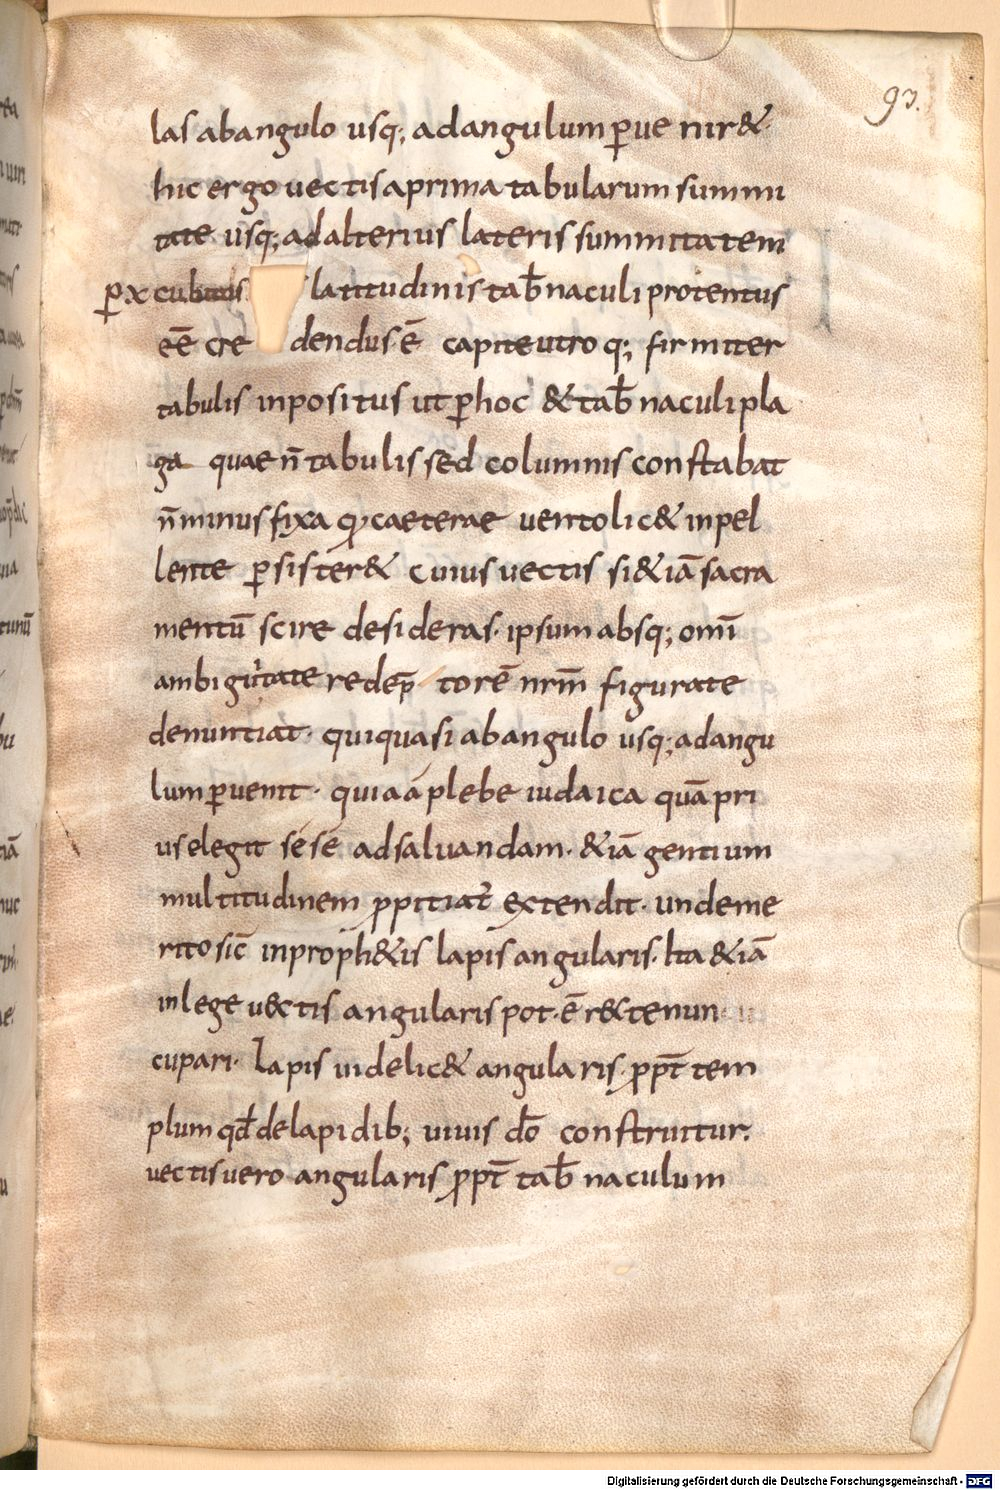 93.
las abangulo usq; adangulum ꝑue nir&
hic ergo vectis aprima tabularum summi
tate usq; adalterius lateris summitatem
ꝑ x cubitis latitudinis tab̄naculi protentus
eē̄ cre dendus ē capite utro q; firmiter
tabulis inpositus ut ꝑhoc & tab̄naculi pla
ga quae n̄ tabulis sed columnis constabat
n̄ minus fixa caeterae uento lic& inpel
lente ꝑsister& Cuius vectis si &iā sacra
mentū scire desideras· ipsum absq; omī
ambiguitate redēp torē nrm̄ figurate
denuntiat· quiquasi abangulo usq; adangu
lum ꝑuenit· quia a plebe iudaica quā pri
us elegit sese adsaluandam· &iā gentium
multitudinem ꝓpitiat̄ extendit· unde me
rito sic̄ inproph&is lapis angularis· Ita &iā
in lege uectis angularis pot· ē recte nun
cupari· Lapis uidelic& angularis ꝓpt̄ tem
plum qd̄ delapidib; uiuis dō construitur·
vectis vero angularis ꝓpt̄ tab̄naculum
Digitalisierung gefördert durch die Deutsche Forschungsgemeinschaft - DFG